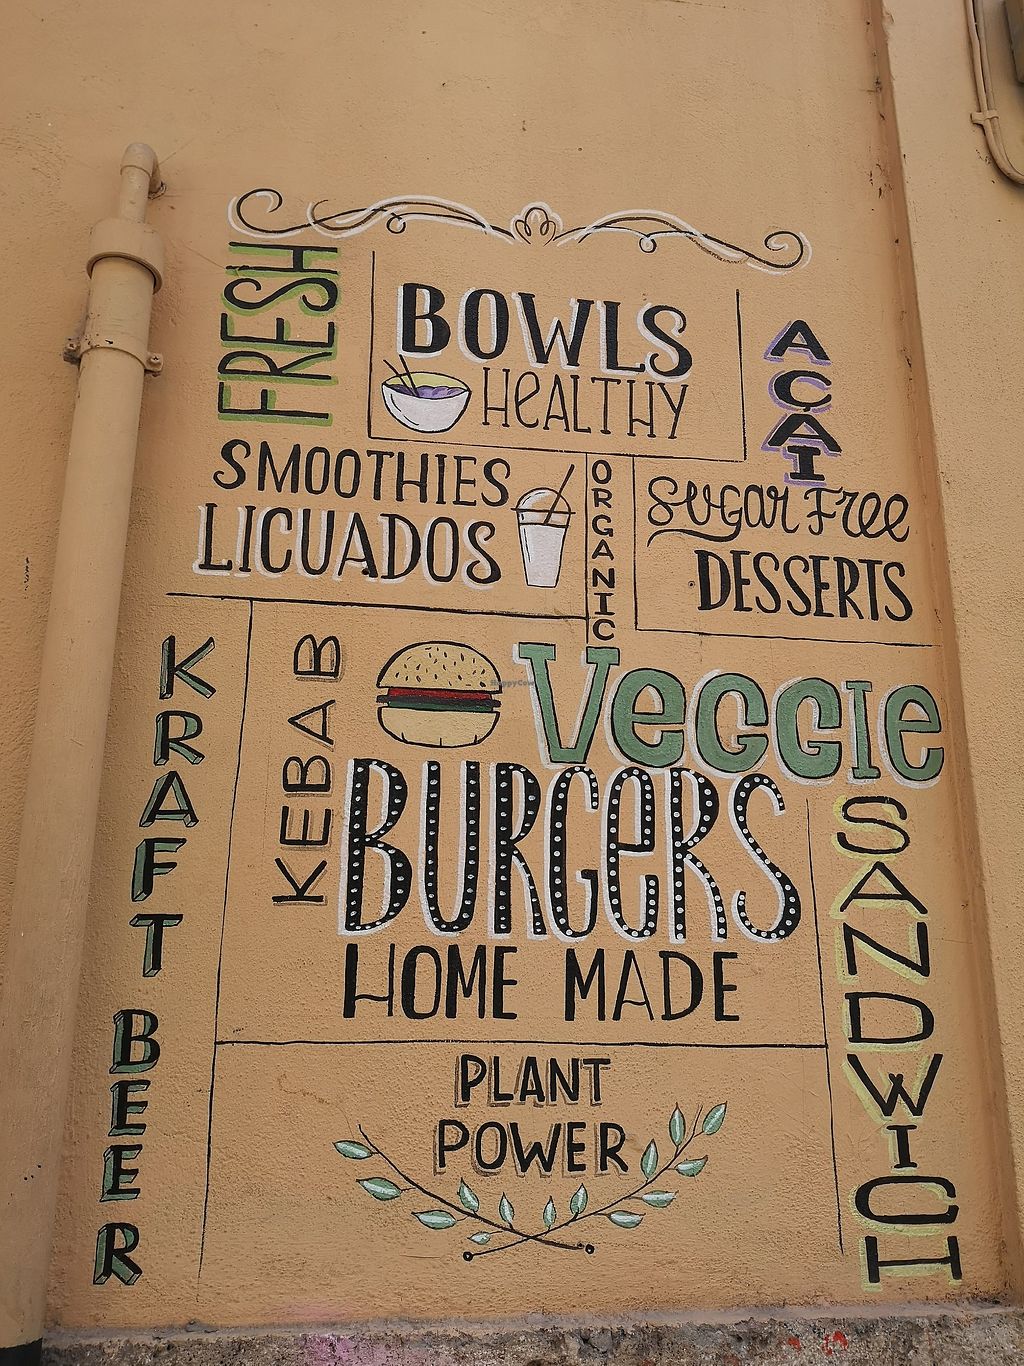 FRESH
BOWLS
HEALTHY
AÇAI
SMOOTHIES
LICUADOS
ORGANIC
Sugar Free
DESSERTS
KRAFT BEER
KEBAB
VeGGIe
BURGeRS
HOME MADE
SANDWICH
PLANT
POWER
HappyCow